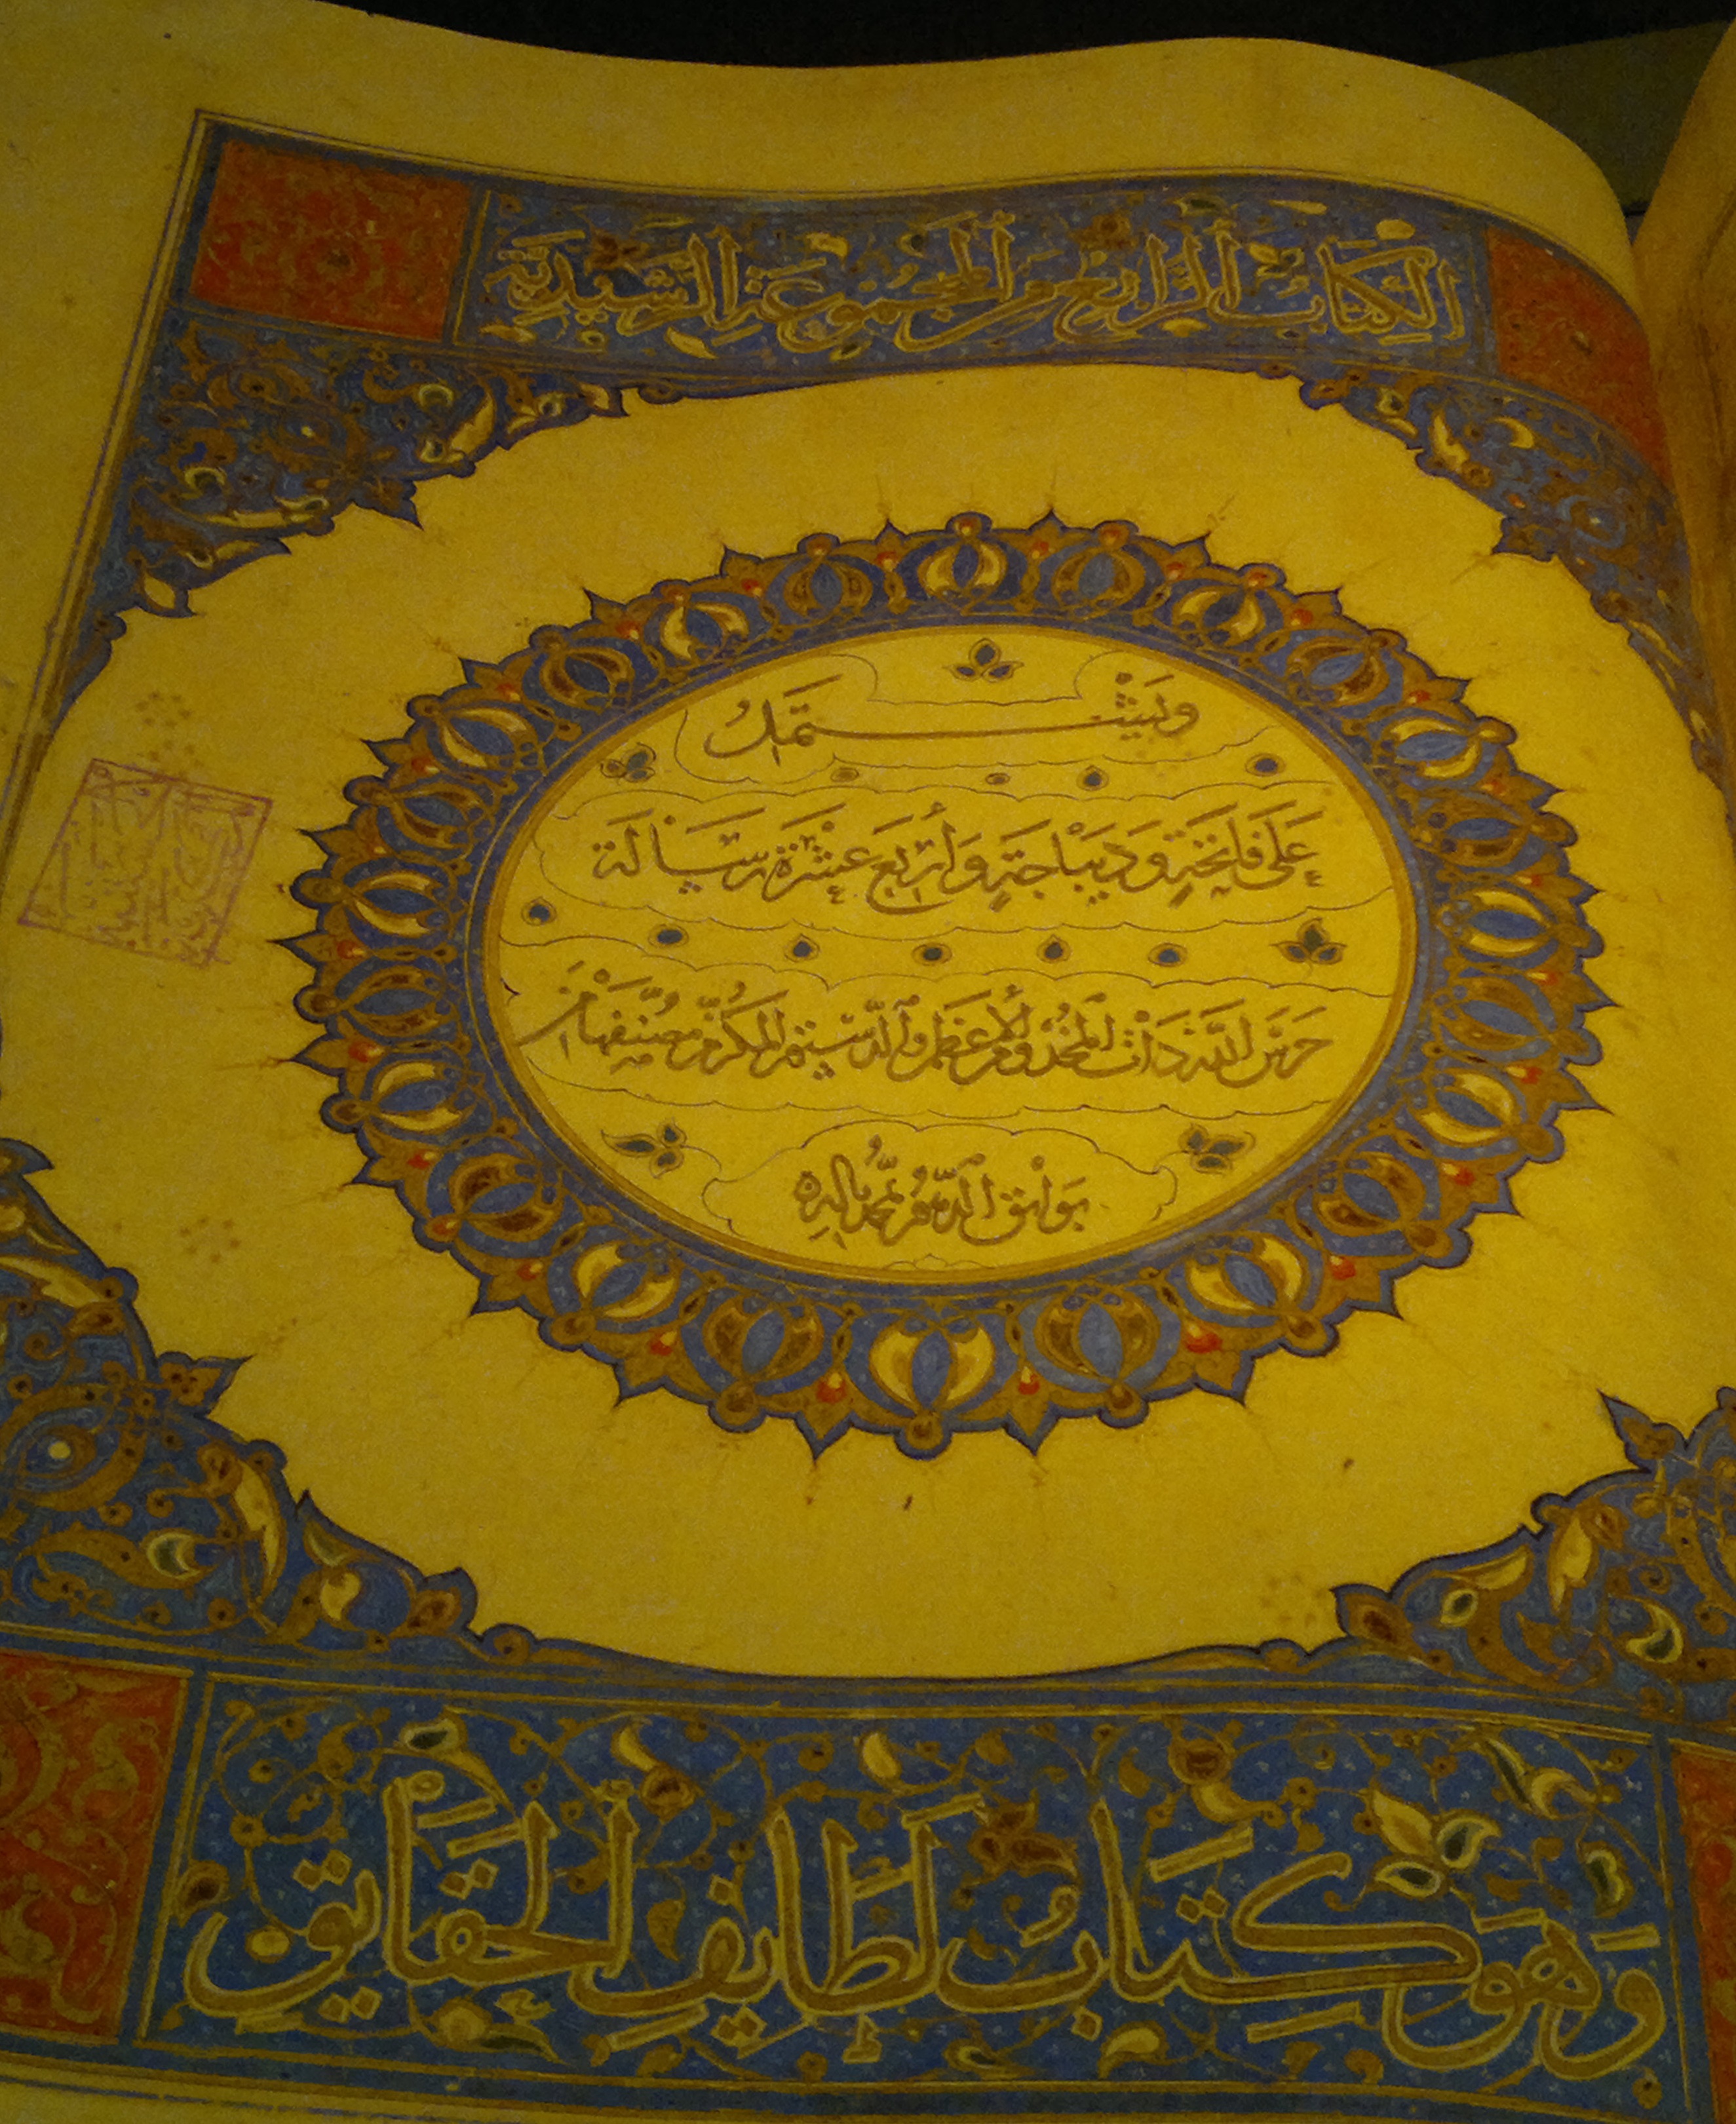 الكِتَابُ الرَّابِعُ مِنَ المَجْمُوعَةِ الرَّشِيدِيَّةِ
وَيَشْتَمِلُ
عَلَى فَاتِحَةٍ وَدِيبَاجَةٍ وَأَرْبَعَ عَشْرَةَ رِسَالَةً
حَرَسَ اللّٰهُ ذَاتَ المَخْدُومِ الأَعْظَمِ وَالدُّسْتُورِ المُكَرَّمِ مُصَنِّفِهَا مِنْ
بَوَائِقِ الدَّهْرِ بِمُحَمَّدٍ وَآلِهِ
وَهُوَ كِتَابُ لَطَايِفِ الحَقَايِقِ